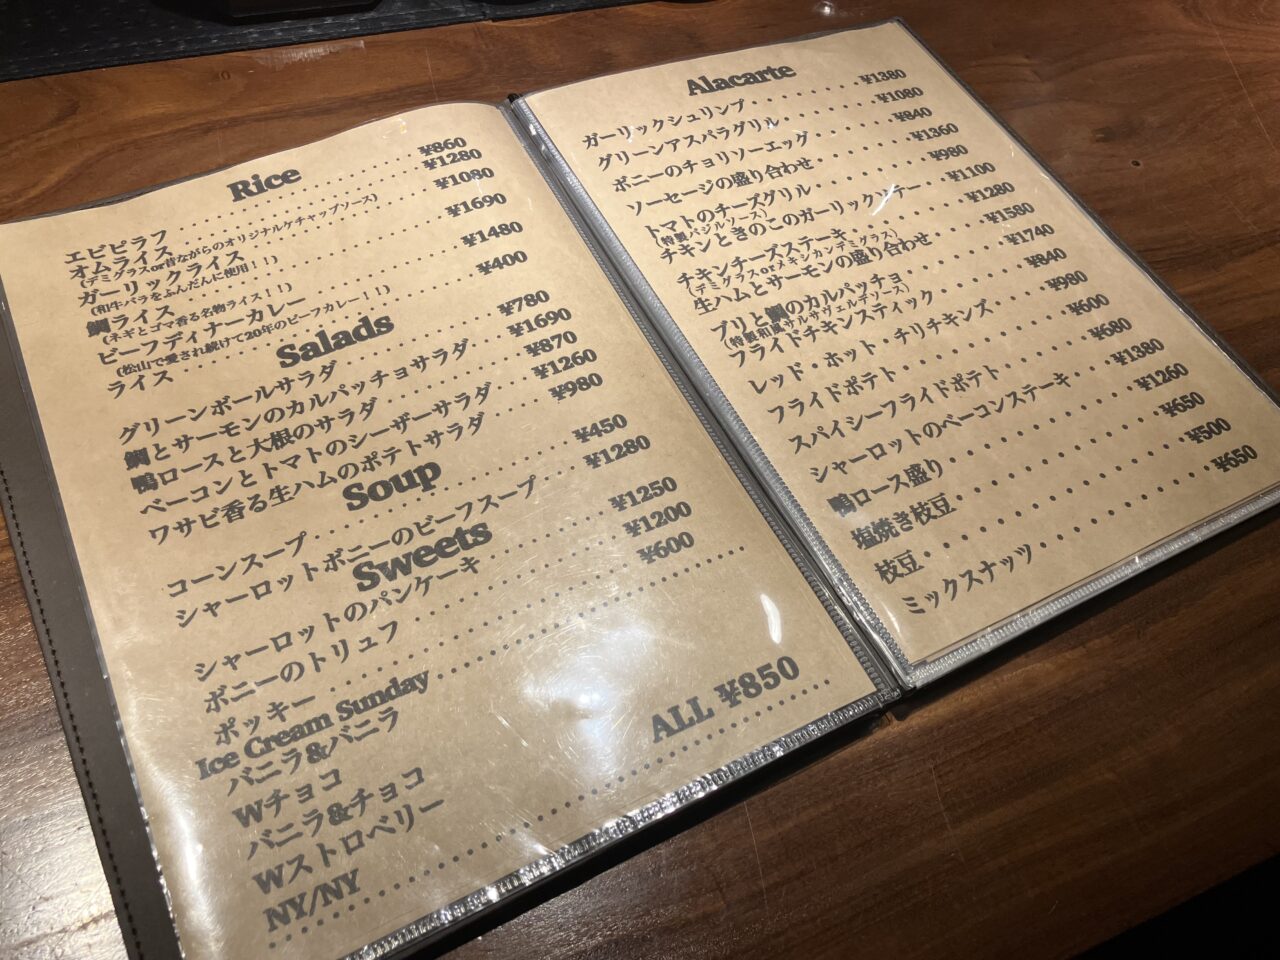 Rice
エビピラフ・・・・・・・・・・・・・¥860
オムライス・・・・・・・・・・・・・¥1280
(デミグラスor昔ながらのオリジナルケチャップソース)
ガーリックライス・・・・・・・・・・¥1080
(和牛バラをふんだんに使用!!)
鯛ライス・・・・・・・・・・・・・・¥1690
(ネギとゴマ香る名物ライス!!)
ビーフディナーカレー・・・・・・・・¥1480
(松山で愛され続けて20年のビーフカレー!!)
ライス・・・・・・・・・・・・・・・¥400
Salads
グリーンボールサラダ・・・・・・・・¥780
鯛とサーモンのカルパッチョサラダ・・・¥1690
鴨ロースと大根のサラダ・・・・・・・¥870
ベーコンとトマトのシーザーサラダ・・・¥1260
ワサビ香る生ハムのポテトサラダ・・・・¥980
Soup
コーンスープ・・・・・・・・・・・・¥450
シャーロットボニーのビーフスープ・・・¥1280
Sweets
シャーロットのパンケーキ・・・・・・¥1250
ボニーのトリュフ・・・・・・・・・・¥1200
ポッキー・・・・・・・・・・・・・・¥600
Ice Cream Sunday・・・・・・・・・・・・・・・・
バニラ&バニラ
Wチョコ
バニラ&チョコ
Wストロベリー
NY/NY
ALL ¥850
Alacarte
ガーリックシュリンプ・・・・・・・・¥1380
グリーンアスパラグリル・・・・・・・¥1080
ボニーのチョリソーエッグ・・・・・・¥840
ソーセージの盛り合わせ・・・・・・・¥1360
トマトのチーズグリル・・・・・・・・¥980
(特製バジルソース)
チキンときのこのガーリックソテー・・¥1100
チキンチーズステーキ・・・・・・・・¥1280
(デミグラスorメキシカンデミグラス)
生ハムとサーモンの盛り合わせ・・・・¥1580
ブリと鯛のカルパッチョ・・・・・・・¥1740
(特製和風サルサヴェルデソース)
フライドチキンスティック・・・・・・¥840
レッド・ホット・チリチキンズ・・・・¥980
フライドポテト・・・・・・・・・・・¥600
スパイシーフライドポテト・・・・・・¥680
シャーロットのベーコンステーキ・・・¥1380
鴨ロース盛り・・・・・・・・・・・・¥1260
塩焼き枝豆・・・・・・・・・・・・・¥650
枝豆・・・・・・・・・・・・・・・・¥500
ミックスナッツ・・・・・・・・・・・¥650